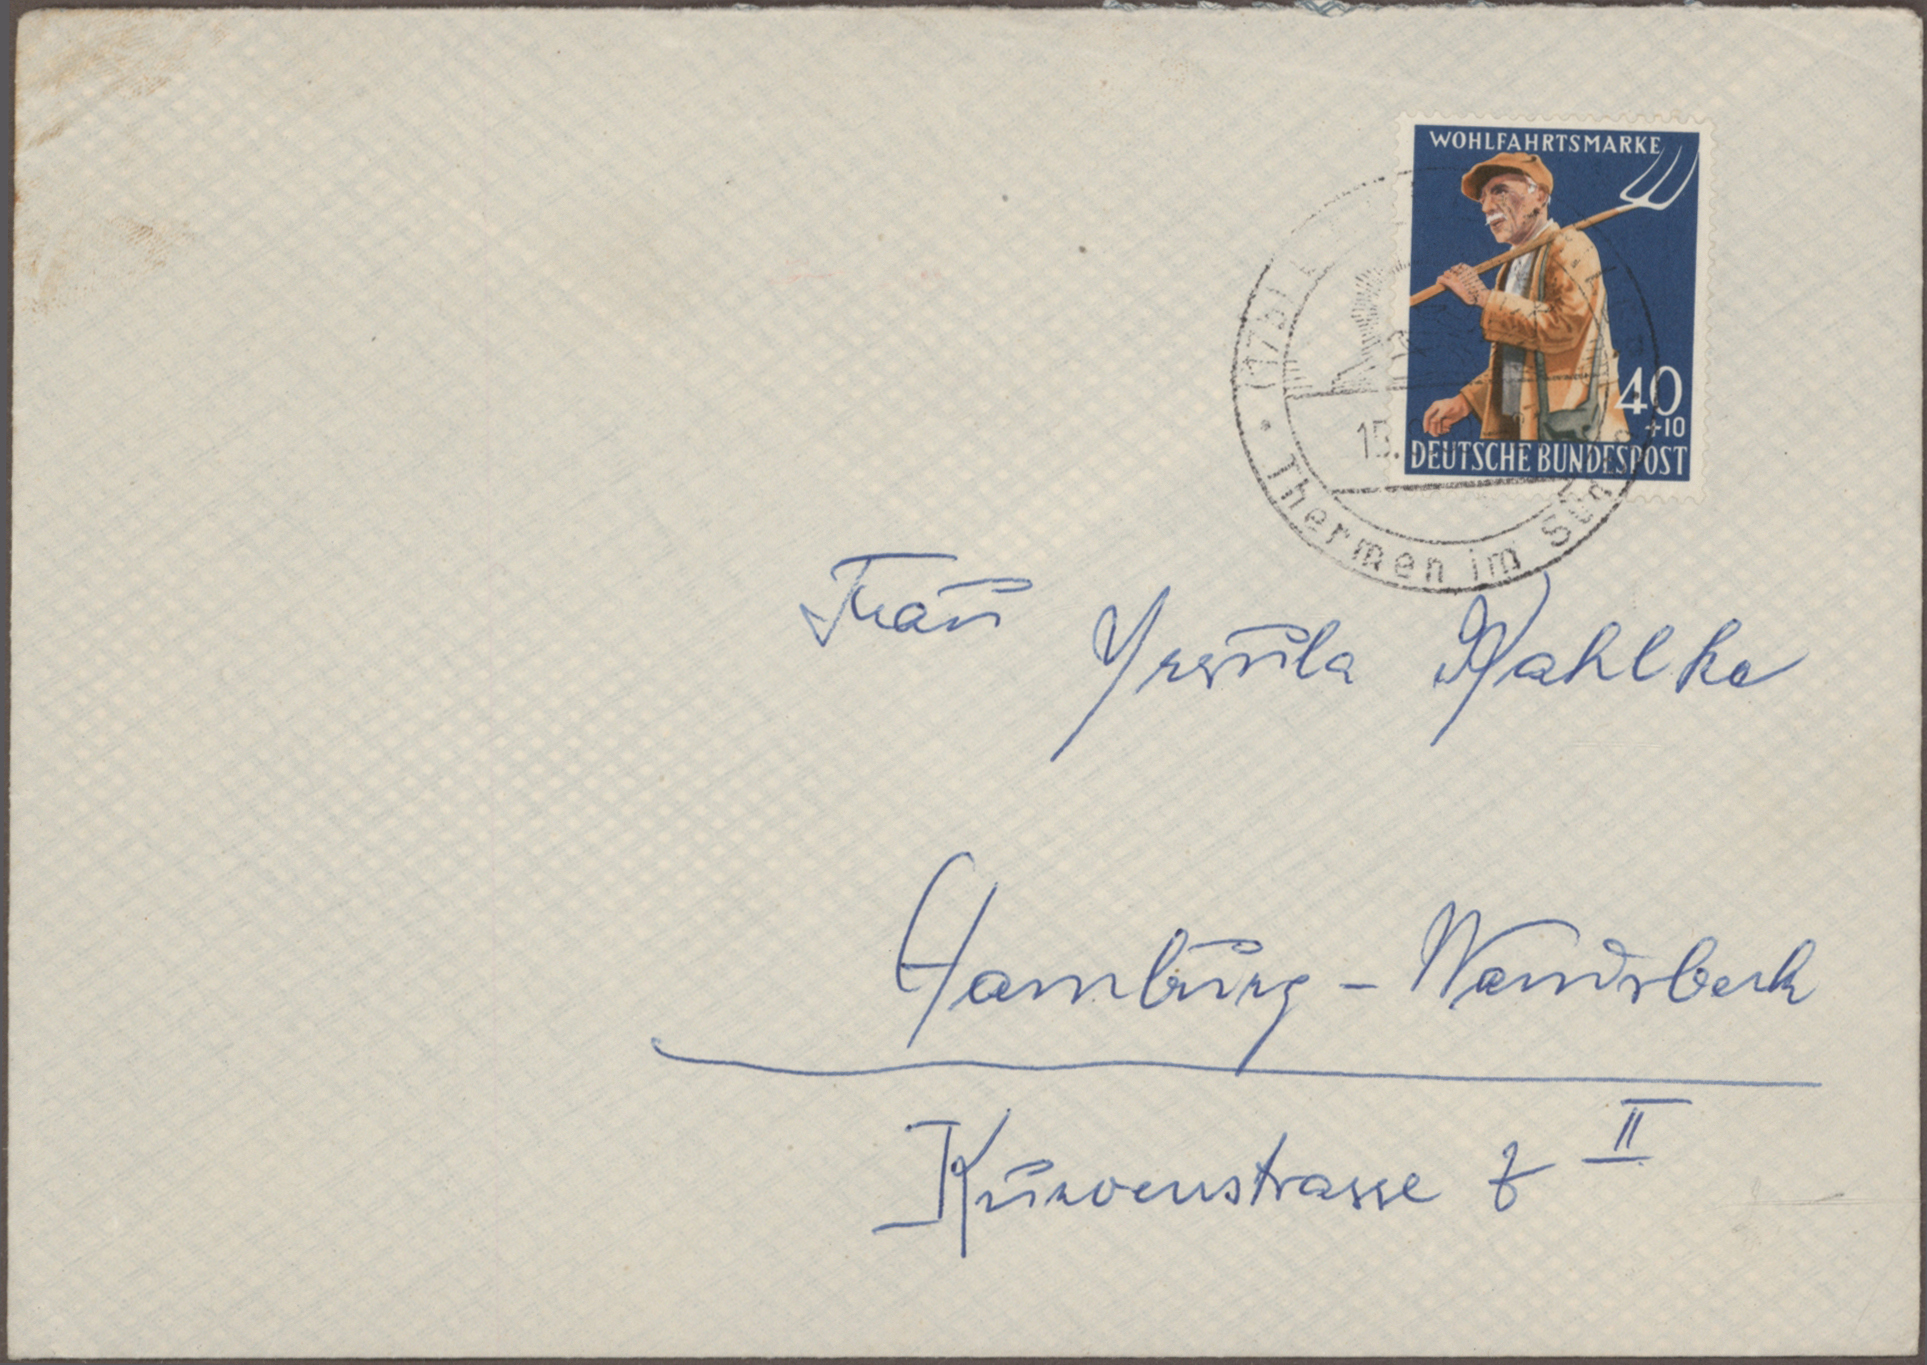 WOHLFAHRTSMARKE
40
+10
DEUTSCHE BUNDESPOST
(17b)
15.
Thermen im
Frau
Ursula Mahlke
Hamburg - Wandsbeck
Kurvenstrasse 7 II